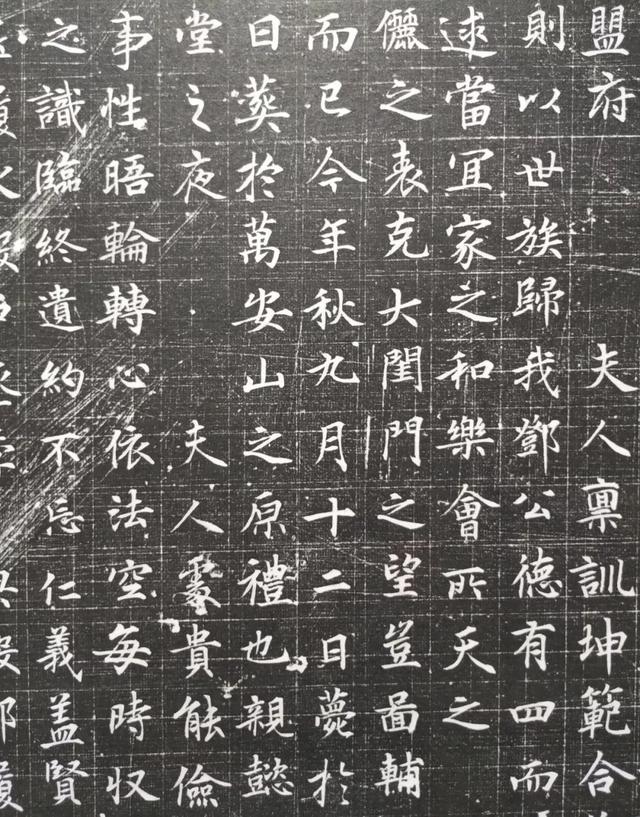 盟府 夫人禀訓珅範合
則以世族歸我鄧公德有四而
逑當宜家之和樂會所天之
儷之表克大閨門之望豈啚輔
而已今年秋九月十二日薨於
日葬於萬安山之原禮也親懿
堂之夜 夫人處貴能儉
事性晤輪轉心依法空每時収
之識臨終遺約不忘仁義盖賢